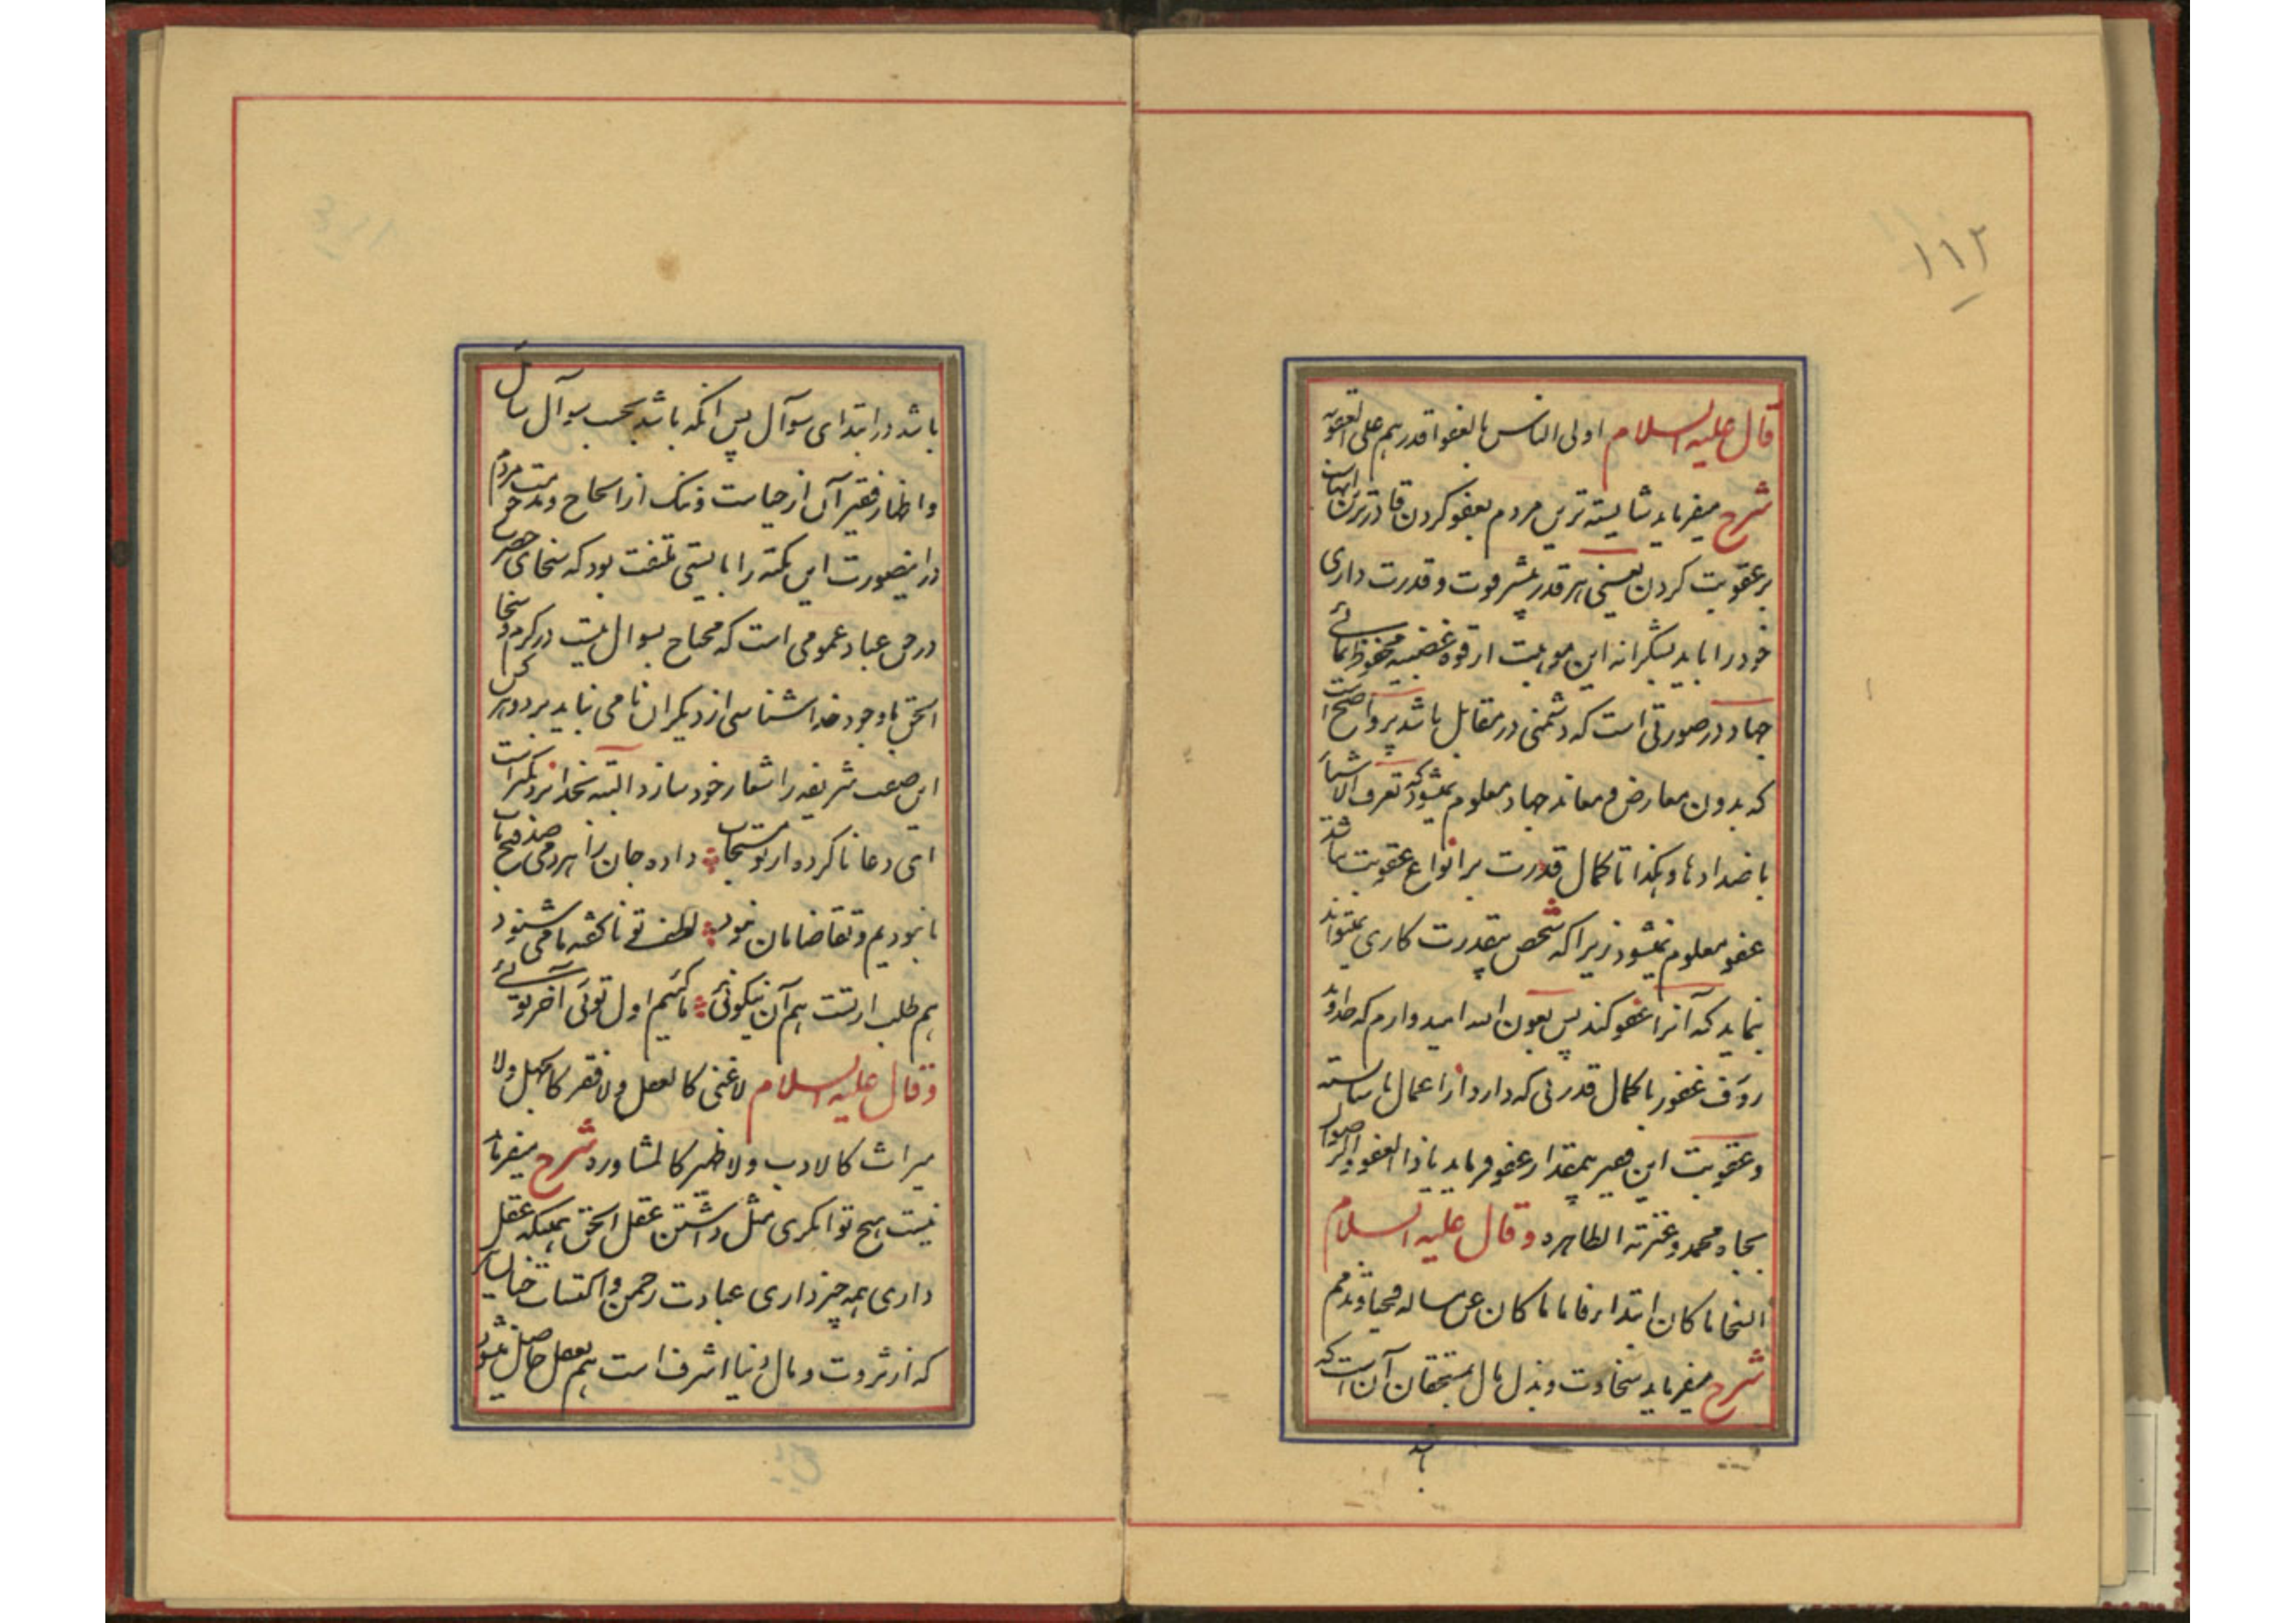 ۱۱۲
قال علیه السلام اولی الناس بالعفو اقدرهم علی العقوبه
شرح میفرماید شایسته ترین مردم بعفو کردن قادرترین ایشان
بر عقوبت کردن یعنی هر قدر بیشتر قوت و قدرت داری
خود را باید بشکرانه این موهبت از قوه غضبیه محفوظ نمائے
جهاد در صورتی است که دشمنی در مقابل باشد پر واضح است
که بدون معارض و معاند جهاد معلوم نمیشود که تعرف الاشیاء
باضدادها و هکذا تا کمال قدرت بر انواع عقوبت نباشد
عفو معلوم نمیشود زیرا که شخص بیقدرت کاری نمیتواند
نماید که آنرا عفو کند پس بعون الله امیدوارم که خداوند
رؤف غفور با کمال قدرتی که دارد از اعمال ناشایسته
و عقوبت این حقیر بیمقدار عفو فرماید یا ذا العفو و الرضوان
بجاه محمد و عترته الطاهره وقال علیه السلام
السخا ما کان ابتداء فاما ما کان عن مساله فحیاء و تذمم
شرح میفرماید سخاوت و بذل مال بمستحقان آن است که
باشد
باشد در ابتدای سوآل پس آنکه باشد بحسب سوآل سائل
و اظهار فقیر آن از حیاست و ننگ از الحاح و مذمت مردم
در اینصورت این نکته را بایستی ملتفت بود که سخای حق
در حق عباد عمومی است که محتاج بسوال نیست در کرم و سخا
الحق با وجود خداشناسی از دیگران نامی نباید برد و هر کس
این صفت شریفه را شعار خود سازد البته بخدا نزدیکتر است
ای دعا ناکرده از تو مستجاب داده جان را هر دمی صد فتح باب
ما نبودیم و تقاضامان نبود لطف تو ناگفته ما می شنود
هم طلب از تست هم آن نیکوئی ما کئیم اول توئی آخر توئے
وقال علیه السلام لا غنی کالعقل ولا فقر کالجهل ولا
میراث کالادب ولا ظهیر کالمشاوره شرح میفرماید
نیست هیچ توانگری مثل داشتن عقل الحق همینکه عقل
داری همه چیز داری عبادت رحمن و اکتساب جنان
که از ثروت و مال دنیا اشرف است هم بعقل حاصل میشود